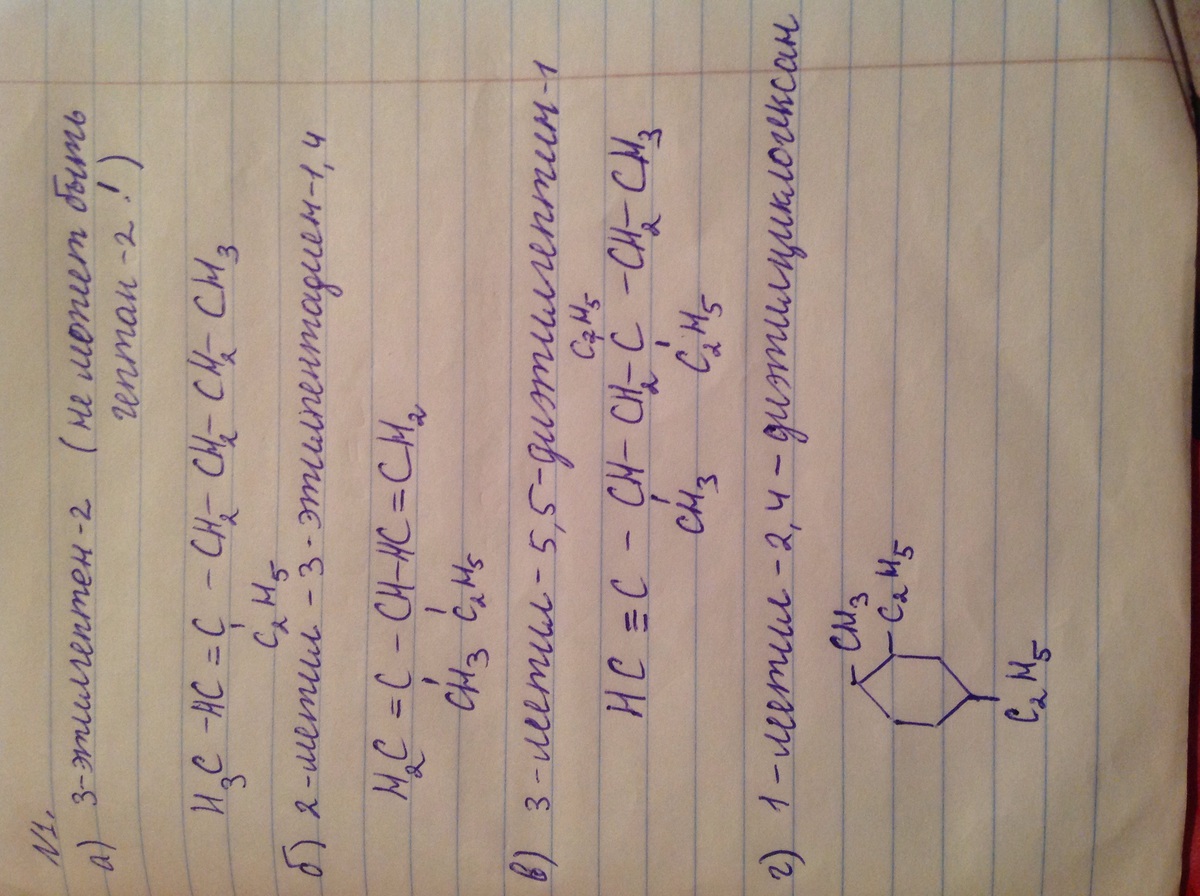 N1.
а) 3-этилгептен-2 (не может быть
гептан-2!)
H₃C -HC = C - CH₂- CH₂- CH₂- CH₃
C₂H₅
б) 2-метил-3-этилпентадиен-1,4
H₂C = C - CH-HC = CH₂
CH₃ C₂H₅
в) 3-метил-5,5-диэтилгептин-1
C₂H₅
HC ≡ C - CH- CH₂- C - CH₂- CH₃
CH₃ C₂H₅
г) 1-метил-2,4-диэтилциклогексан
CH₃
C₂H₅
C₂H₅